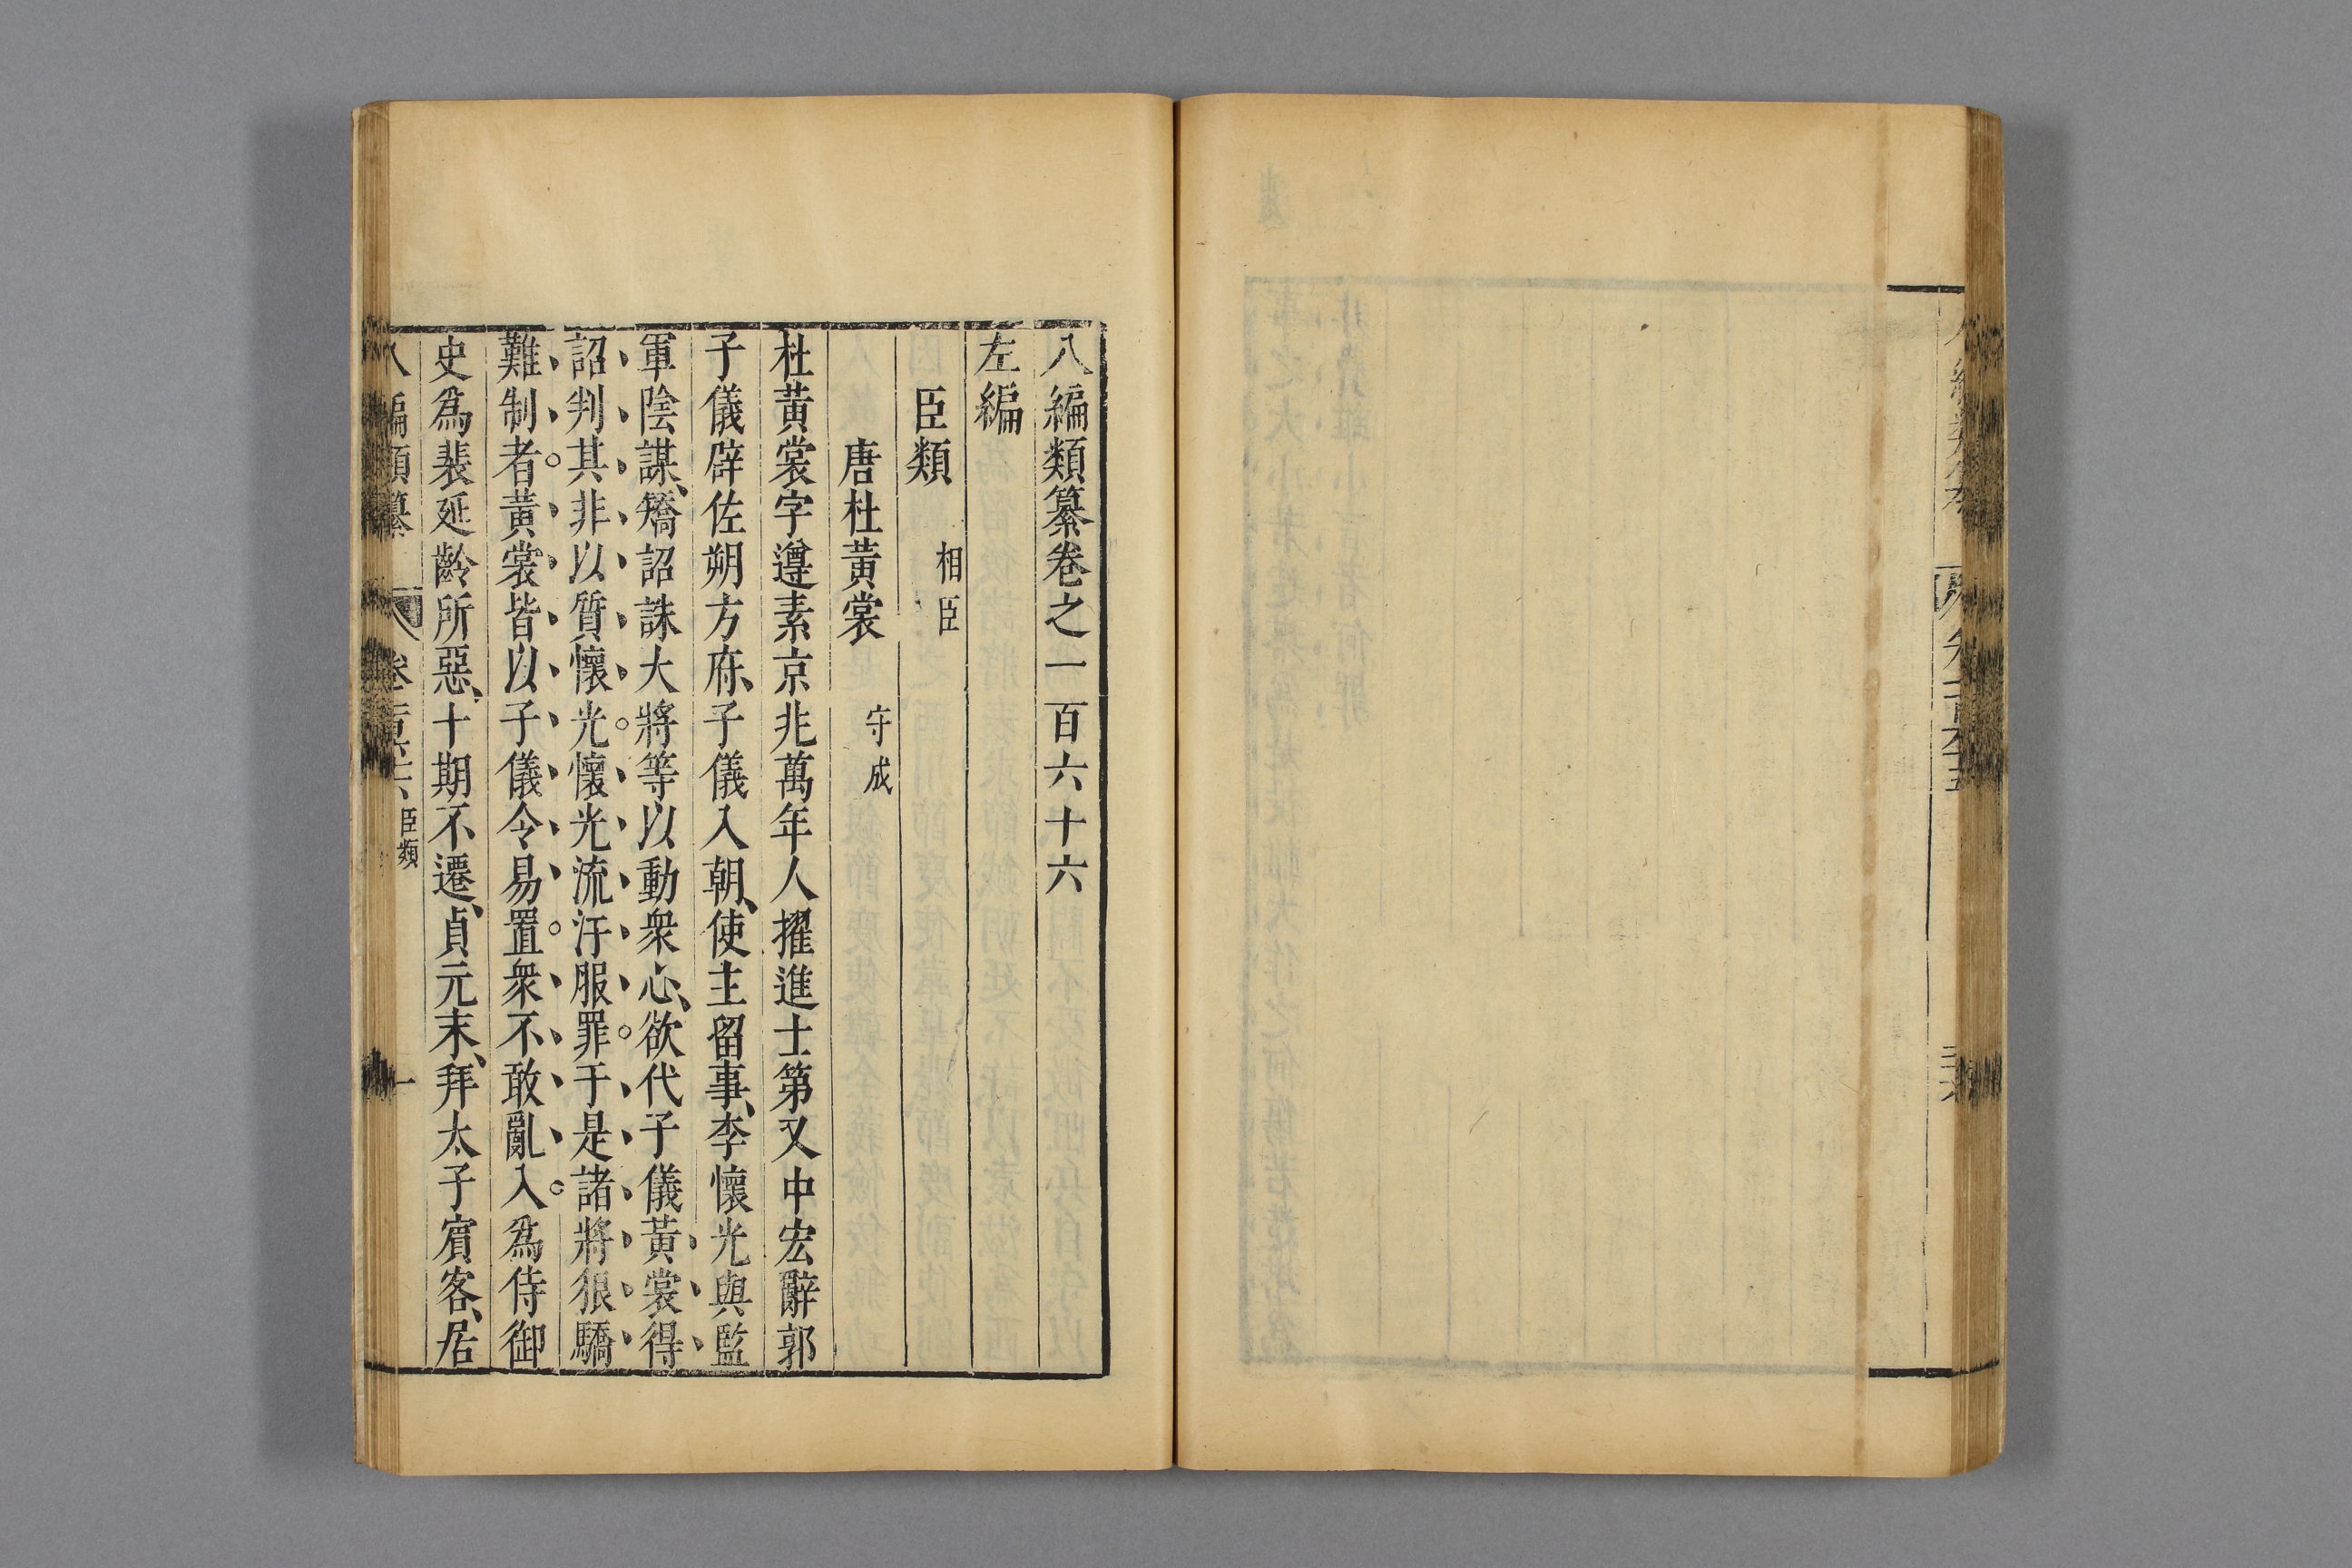 八編類纂卷之一百六十六
左編
臣類 相臣
唐杜黃裳 守成
杜黃裳字遵素京兆萬年人擢進士第又中宏辭郭
子儀辟佐朔方府、子儀入朝、使主留事、李懷光與監
軍陰謀、矯詔誅大將等以動衆心、欲代子儀黃裳得
詔判其非以質懷光懷光流汗服罪于是諸將狠驕
難制者黃裳皆以子儀令易置衆不敢亂入爲侍御
史爲裴延齡所惡、十期不遷、貞元末、拜太子賔客、居
臣類
一